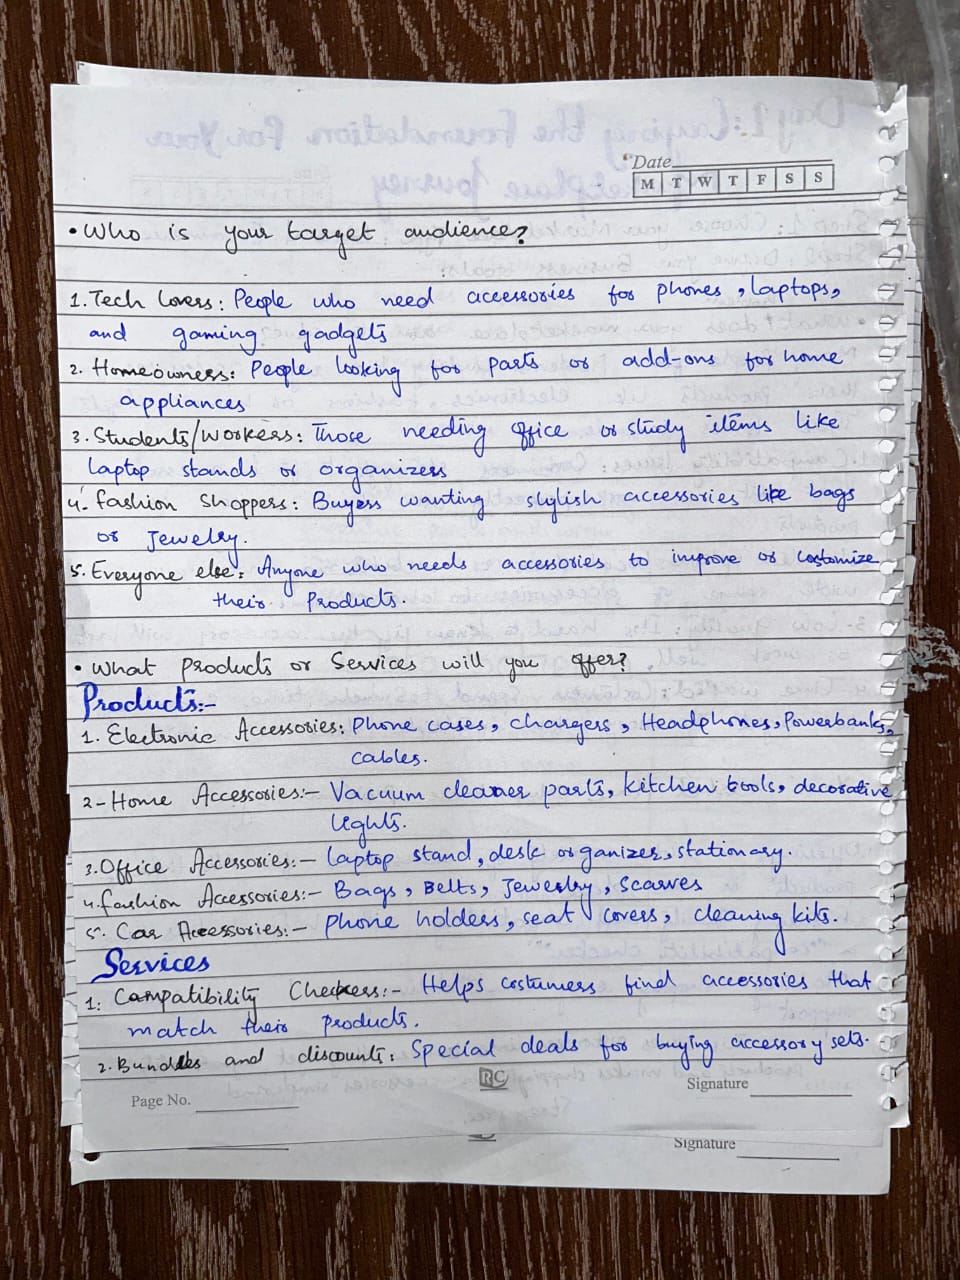 Date
M T W T F S S
• Who is your target audience?
1. Tech Lovers: People who need accessories for phones, laptops,
and gaming gadgets
2. Homeowners: People looking for parts or add-ons for home
appliances
3. Students/Workers: Those needing office or study items like
laptop stands or organizers
4. Fashion Shoppers: Buyers wanting stylish accessories like bags
or Jewelry.
5. Everyone else: Anyone who needs accessories to improve or costomize
their Products.
• What products or Services will you offer?
Products:-
1. Electronic Accessories: Phone cases, chargers, Headphones, Powerbanks,
cables.
2- Home Accessories:- Vacuum cleaner parts, kitchen tools, decorative
lights.
3. Office Accessories:- laptop stand, desk organizer, stationary.
4. fashion Accessories:- Bags, Belts, Jewerlry, Scarves
5. Car Accessories:- Phone holders, seat covers, cleaning kits.
Services
1. Campatibility Checkers:- Helps costumers find accessories that
match their products.
2. Bundles and discounts: Special deals for buying accessory sets.
RC
Page No. Signature
Signature